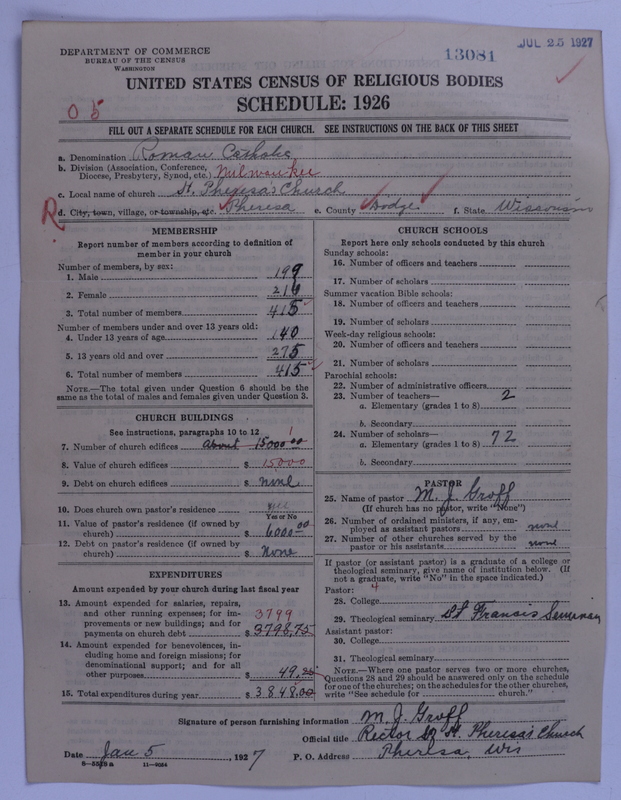 DEPARTMENT OF COMMERCE
BUREAU OF THE CENSUS
WASHINGTON
13081
JUL 25 1927
UNITED STATES CENSUS OF RELIGIOUS BODIES
SCHEDULE: 1926
05
FILL OUT A SEPARATE SCHEDULE FOR EACH CHURCH. SEE INSTRUCTIONS ON THE BACK OF THIS SHEET
a. Denomination Roman Catholic
b. Division (Association, Conference, Diocese, Presbytery, Synod, etc.) Milwaukee
c. Local name of church St. Theresa's Church
R d. City, town, village, or township, etc. Theresa e. County Dodge f. State Wisconsin
MEMBERSHIP
Report number of members according to definition of
member in your church
Number of members, by sex:
1. Male 199
2. Female 216
3. Total number of members 415
Number of members under and over 13 years old:
4. Under 13 years of age 140
5. 13 years old and over 275
6. Total number of members 415
NOTE.—The total given under Question 6 should be the
same as the total of males and females given under Question 3.
CHURCH BUILDINGS
See instructions, paragraphs 10 to 12
7. Number of church edifices About 15000.00 1
8. Value of church edifices $ 15000
9. Debt on church edifices $ none
10. Does church own pastor's residence yes
Yes or No
11. Value of pastor's residence (if owned by
church) $ 6000.00
12. Debt on pastor's residence (if owned by
church) $ None
EXPENDITURES
Amount expended by your church during last fiscal year
13. Amount expended for salaries, repairs,
and other running expenses; for im-
provements or new buildings; and for 3799
payments on church debt $ 3798.75
14. Amount expended for benevolences, in-
cluding home and foreign missions; for
denominational support; and for all
other purposes $ 49.25
15. Total expenditures during year $ 3848.00
CHURCH SCHOOLS
Report here only schools conducted by this church
Sunday schools:
16. Number of officers and teachers
17. Number of scholars
Summer vacation Bible schools:
18. Number of officers and teachers
19. Number of scholars
Week-day religious schools:
20. Number of officers and teachers
21. Number of scholars
Parochial schools:
22. Number of administrative officers
23. Number of teachers—
a. Elementary (grades 1 to 8) 2
b. Secondary
24. Number of scholars—
a. Elementary (grades 1 to 8) 72
b. Secondary
PASTOR
25. Name of pastor M. J. Groff
(If church has no pastor, write "None")
26. Number of ordained ministers, if any, em-
ployed as assistant pastors none
27. Number of other churches served by the
pastor or his assistants none
If pastor (or assistant pastor) is a graduate of a college or
theological seminary, give name of institution below. (If
not a graduate, write "No" in the space indicated.)
Pastor: 4
28. College
29. Theological seminary St Francis Seminary
Assistant pastor:
30. College
31. Theological seminary
NOTE.—Where one pastor serves two or more churches,
Questions 28 and 29 should be answered only on the schedule
for one of the churches; on the schedules for the other churches,
write "See schedule for church."
Signature of person furnishing information M. J. Groff
Official title Rector of St. Theresa's Church
Date Jan 5, 1927 P. O. Address Theresa, Wis
8—5519a 11—9084